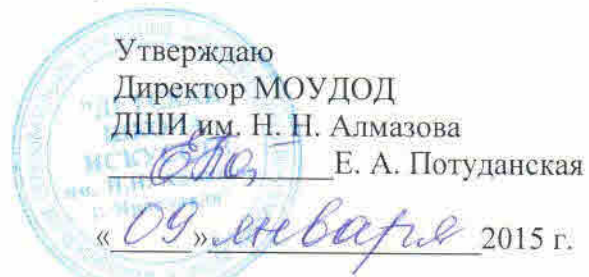 Утверждаю
Директор МОУДОД
ДШИ им. Н. Н. Алмазова
Е. А. Потуданская
«09» января 2015 г.